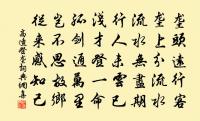 壟頭遠行客
壟上分流水
流水無盡期
行人未雲已
淺才登一命
孤劍通萬里
豈不思故鄉
從來感知己
高適登壟詞典網書